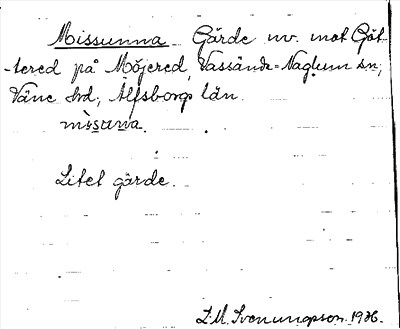 Missunna Gärde nv. mot Göt-
tered på Möjered, Vassända-Naglum sn,
Väne hrd, Älfsborgs län.
mìsuna.
Litet gärde.
S. M. Svenungsson. 1926.